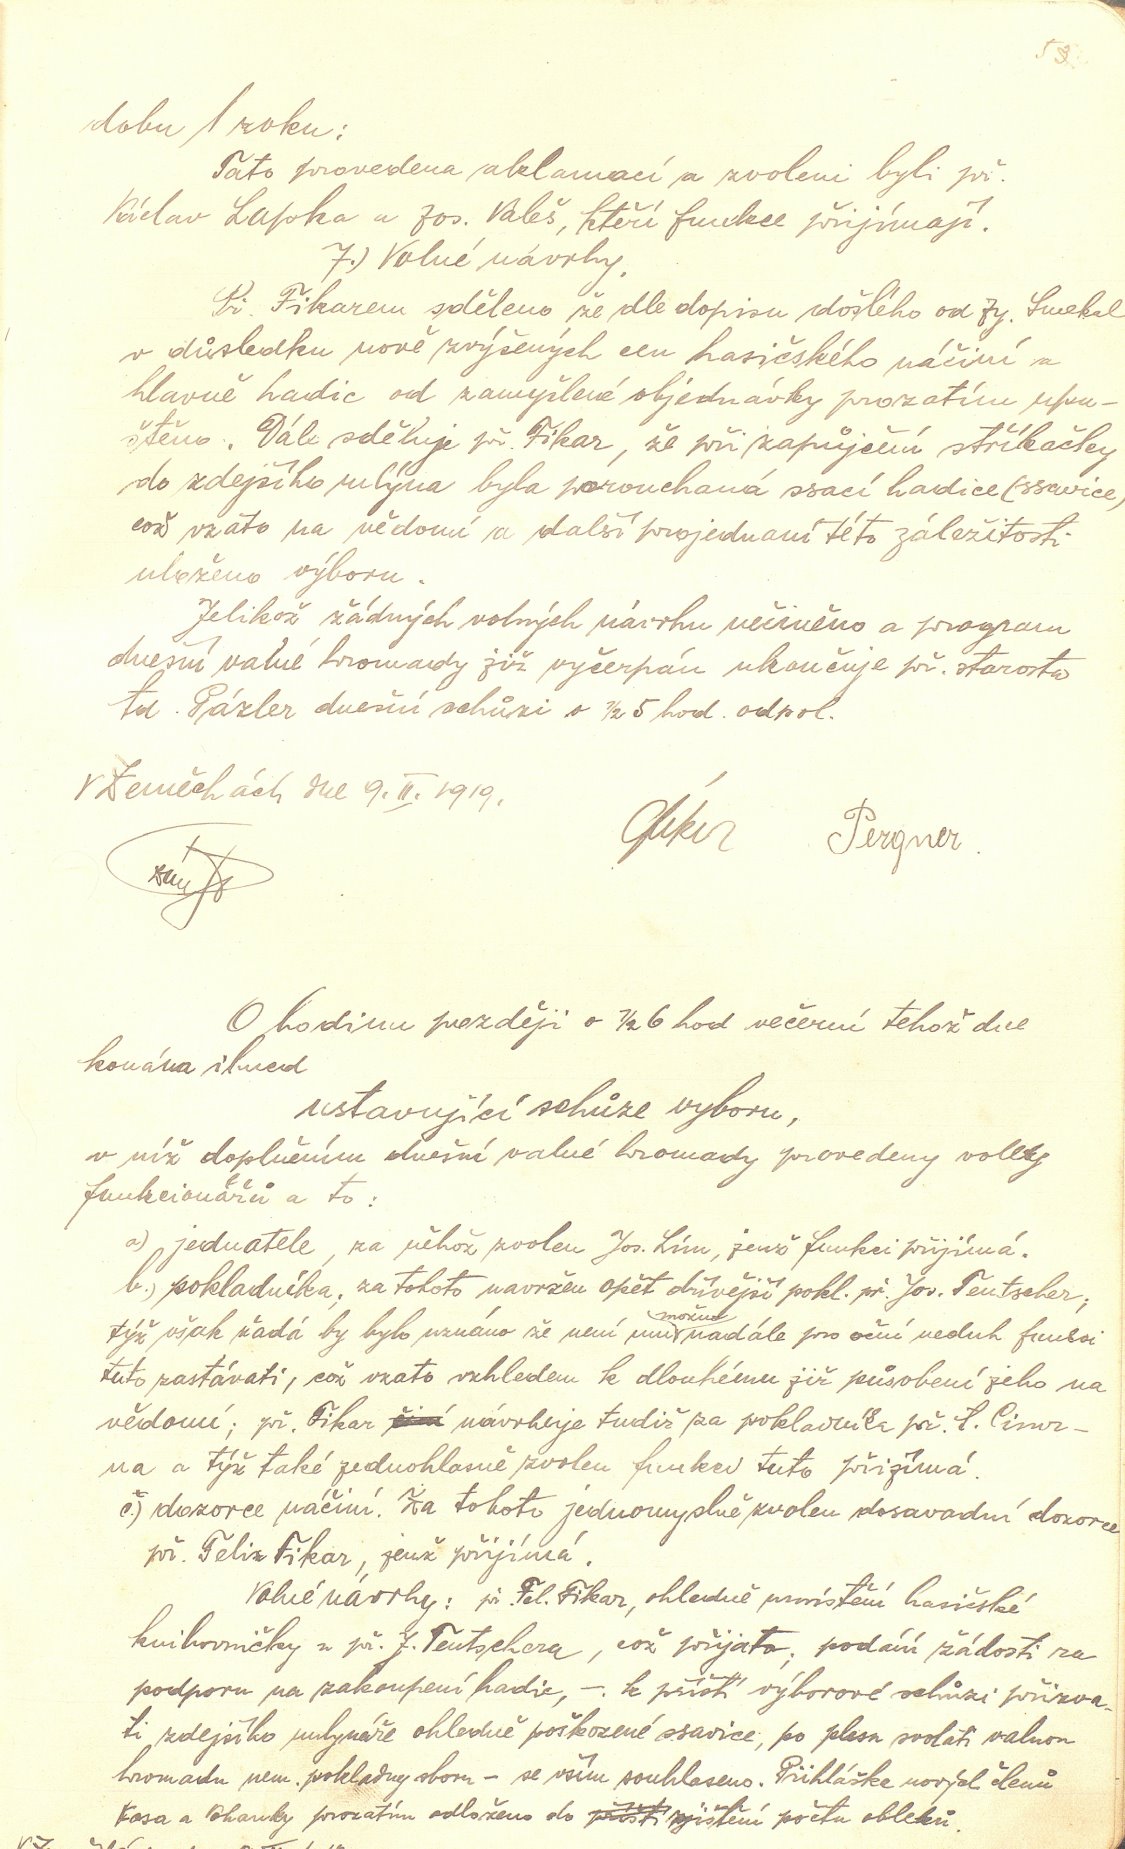 53
dobu 1 roku:
Tato provedena aklamací a zvoleni byli př.
Václav Lapka a Jos. Valeš, kteří funkce přijímají.
7.) Volné návrhy.
Př. Fikarem sděleno že dle dopisu došlého od fy. Smekal
v důsledku nově zvýšených cen hasičského náčiní a
hlavně hadic od zamýšlené objednávky prozatím upu-
štěno. Dále sděluje př. Fikar, že při zapůjčení stříkačky
do zdejšího mlýna byla porouchaná ssací hadice (ssavice,
což vzáto na vědomí a další projednaní této záležitosti
uloženo výboru.
Jelikož žádných volných návrhu nečiněno a program
dnešní valné hromady již vyčerpán ukončuje př. starosta
Ed. Pázler dnešní schůzi o ½ 5 hod. odpol.
V Zeměchách dne 9. II. 1919.
Pergner.
O hodinu později o ½ 6 hod večerní tehož dne
konána ihned
ustavující schůze vyboru,
v níž doplněním dnešní valné hromady provedeny volby
funkcionářů a to:
a) jednatele, za něhož zvolen Jos. Lím, jenž funkci přijímá.
b.) pokladníka, za tohoto navržen opět dřívější pokl. př. Jos. Teutscher;
týž však žadá by bylo uznáno že není mu možno nadále pro oční neduh funkci
tuto zastávati, což vzato vzhledem k dlouhému již působení jeho na
vědomí; př. Fikar činí návrhuje tudiž za pokladníka př. F. Cinor-
na a týž také jednohlasně zvolen funkci tuto přijímá.
č.) dozorce náčiní. Za tohoto jednomyslně zvolen dosavadní dozorce
př. Felix Fikar, jenž přijímá.
Volné návrhy: př. Fel. Fikar, ohledně umístění hasičské
knihovničky u př. J. Teutschera, což přijato; podání žádosti za
podporu na zakoupení hadic, –. k příští výborové schůzi přizva-
ti zdejšího mlynáře ohledně poškozené ssavice, po plesu svolati valnou
hromadu nem. pokladny sboru – se vším souhlaseno. Přihláška nových členů
Kosa a prozatím odloženo do příští zjištění počtu obleků.